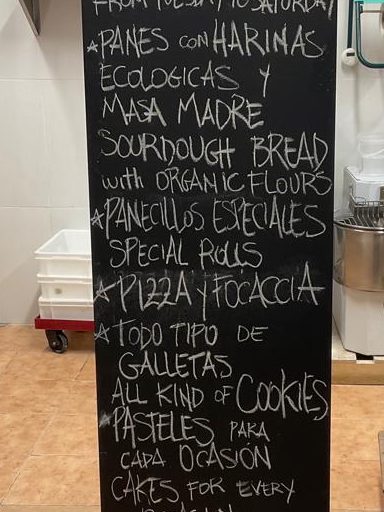 FROM TUESDAY TO SATURDAY
★PANES con HARINAS
ECOLOGICAS Y
MASA MADRE
SOURDOUGH BREAD
with ORGANIC FLOURS
★PANECILLOS ESPECIALES
SPECIAL ROLLS
★PIZZA y FOCACCIA
★TODO TIPO DE
GALLETAS
ALL KIND OF COOKIES
★PASTELES PARA
CADA OCASIÓN
CAKES FOR EVERY